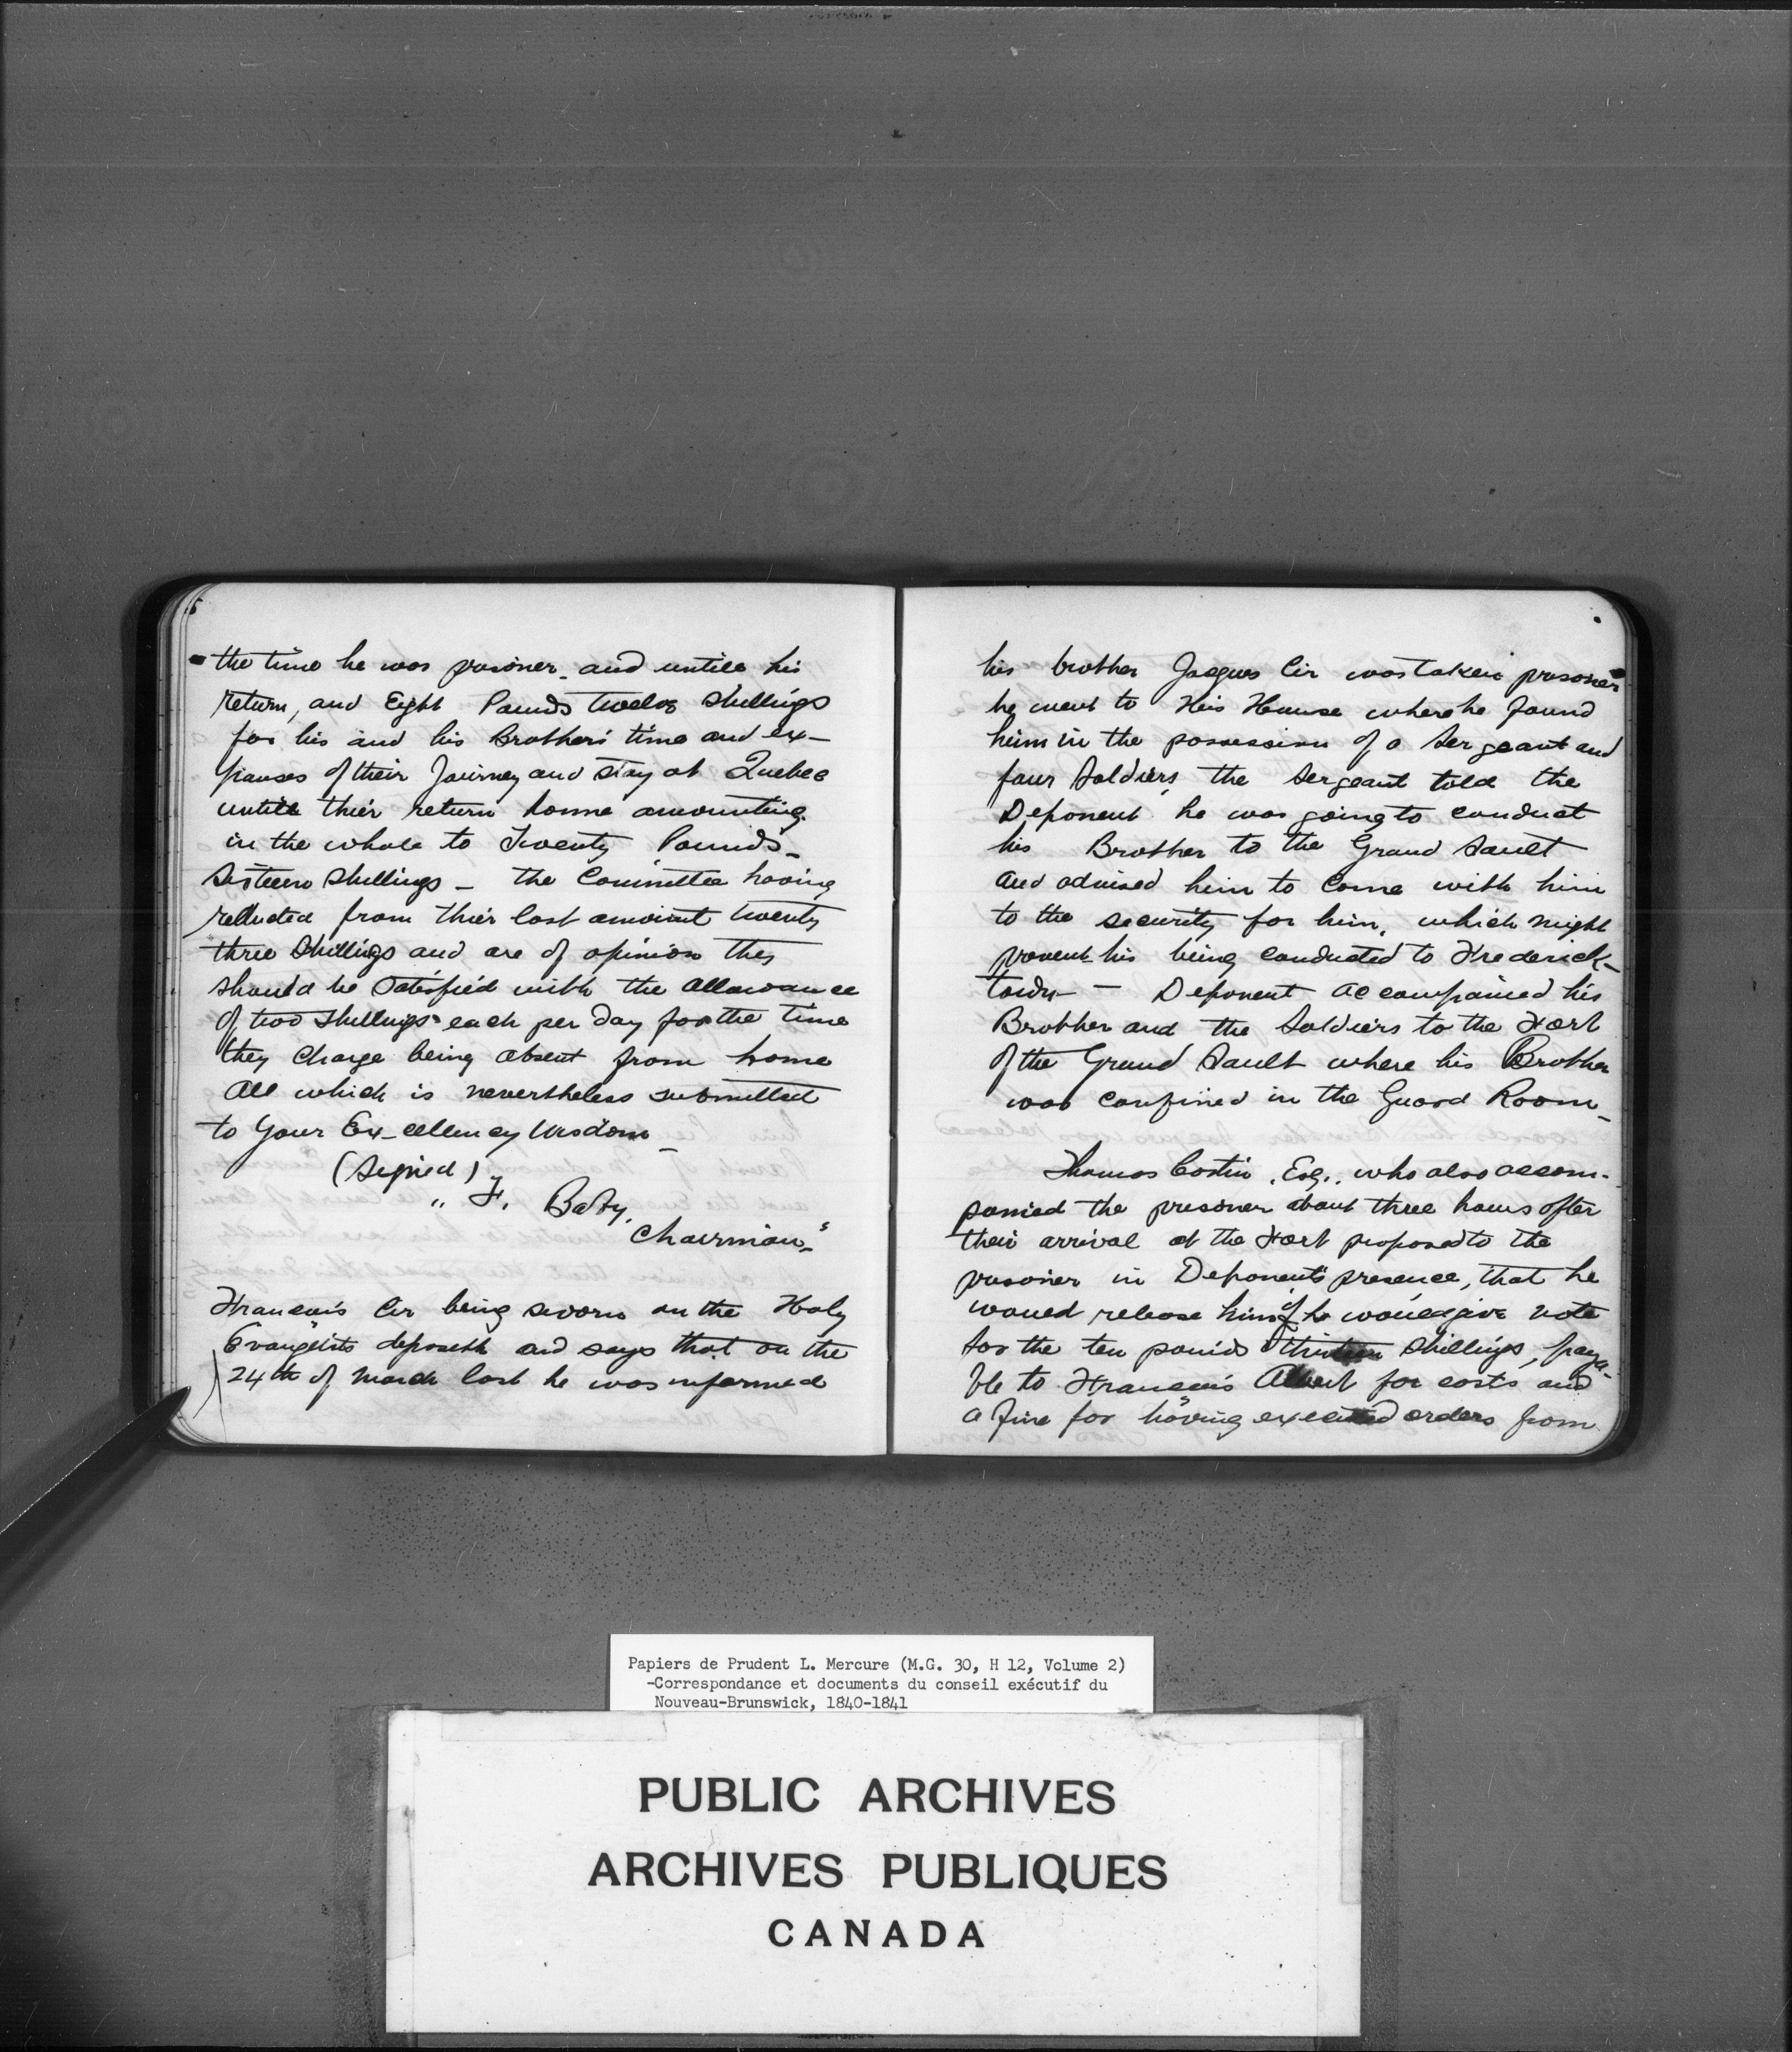 the time he was prisoner and untill his
return, and Eight Pounds twelve shillings
for his and his Brothers' time and ex-
penses of their Journey and stay at Quebec
untill thier return home amounting
in the whole to Twenty Pounds-
Sixteen shillings - the Committee having
reducted from thier last amount twenty
three shillings and are of opinion they
should be satisfied with the allowance
of two shillings each per day for the time
they charge being absent from home
All which is nevertheless submitted
to Your Ex-cellency Wisdom-
(signed)
" F. Baby,
Chairman-"
Francois Cir being sworn on the Holy
Evangelists deposeth and says that on the
24th of March last he was informed
his brother Jacques Cir was taken prisoner
he went to His House where he found
him in the possession of a Sergeant and
four Soldiers, the Sergeant told the
Deponent he was going to conduct
his Brother to the Grand Sault
and advised him to come with him
to the security for him, which might
prevent his being conducted to Frederick-
town - Deponent accompained his
Brother and the Soldiers to the Fort
of the Grand Sault where his Brother
was confined in the Guard Room-
Thomas Costin, Esq., who also accom-
panied the prisoner about three hours after
their arrival at the Fort proposed to the
prisoner in Deponent's presence, that he
would release him if he would give note
for the ten pounds thirteen shillings, paya-
ble to Francois Albert for costs and
a fine for having executed orders from
Papiers de Prudent L. Mercure (M.G. 30, H 12, Volume 2)
-Correspondance et documents du conseil exécutif du
Nouveau-Brunswick, 1840-1841
PUBLIC ARCHIVES
ARCHIVES PUBLIQUES
CANADA